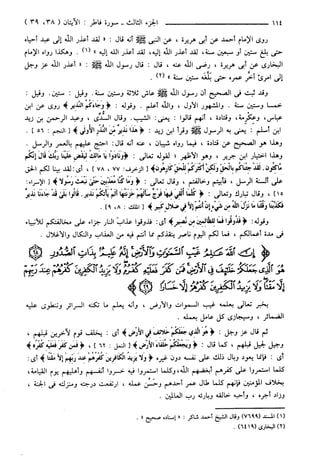 ١١٤ الجزء الثالث - سورة فاطر : الآيتان (٣٨، ٣٩)
روى الإمام أحمد عن أبي هريرة ، عن النبي ﷺ أنه قال : « لقد أعذر الله إلى عبد أحياه
حتى بلغ ستين أو سبعين سنة، لقد أعذر الله إليه، لقد أعذر الله إليه »(١) . وهكذا رواه الإمام
البخاري عن أبي هريرة ، رضي الله عنه ، قال : قال رسول الله ﷺ : « أعذر الله عز وجل
إلى امرئ أخر عمره حتى بلغه ستين سنة »(٢) .
وقد ثبت في الصحيح أن رسول الله ﷺ عاش ثلاثة وستين سنة. وقيل : ستين. وقيل :
خمسا وستين سنة . والمشهور الأول ، والله أعلم . وقوله : ﴿ وجاءكم النذير ﴾ روى عن ابن
عباس، وعكرمة، وقتادة ، أنهم قالوا : يعنى : الشيب. وقال السدى ، وعبد الرحمن بن زيد
ابن أسلم : يعنى به الرسول ﷺ وقرأ ابن زيد : ﴿ هذا نذير من النذر الأولى ﴾ [ النجم : ٥٦ ] .
وهذا هو الصحيح عن قتادة ، فيما رواه شيبان ، عنه أنه قال: احتج عليهم بالعمر والرسل .
وهذا اختيار ابن جرير ، وهو الأظهر ؛ لقوله تعالى : ﴿ ونادوا يا مالك ليقض علينا ربك قال إنكم
ماكثون . لقد جئناكم بالحق ولكن أكثركم للحق كارهون ﴾ [ الزخرف: ٧٧ ، ٧٨ ] ، أي: لقد بينا لكم الحق
على ألسنة الرسل ، فأبيتم وخالفتم ، وقال تعالى : ﴿ وما كنا معذبين حتى نبعث رسولا ﴾ [ الإسراء:
١٥ ] ، وقال تبارك وتعالى : ﴿ كلما ألقي فيها فوج سألهم خزنتها ألم يأتكم نذير . قالوا بلى قد جاءنا نذير
فكذبنا وقلنا ما نزل الله من شيء إن أنتم إلا في ضلال كبير ﴾ [ الملك : ٨ ، ٩ ] .
وقوله: ﴿ فذوقوا فما للظالمين من نصير ﴾ أي: فذوقوا عذاب النار جزاء على مخالفتكم للأنبياء
في مدة أعمالكم ، فما لكم اليوم ناصر ينقذكم مما أنتم فيه من العذاب والنكال والأغلال .
إن الله عالم غيب السماوات والأرض إنه عليم بذات الصدور
هو الذي جعلكم خلائف في الأرض فمن كفر فعليه كفره ولا يزيد الكافرين كفرهم عند ربهم
إلا مقتا ولا يزيد الكافرين كفرهم إلا خسارا
يخبر تعالى بعلمه غيب السموات والأرض ، وأنه يعلم ما تكنه السرائر وتنطوى عليه
الضمائر ، وسيجازى كل عامل بعمله .
ثم قال عز وجل : ﴿ هو الذي جعلكم خلائف في الأرض ﴾ أي : يخلف قوم لآخرين قبلهم ،
وجيل لجيل قبلهم ، كما قال : ﴿ ويجعلكم خلفاء الأرض ﴾ [ النمل : ٦٢ ] ، ﴿ فمن كفر فعليه كفره ﴾
أي : فإنما يعود وبال ذلك على نفسه دون غيره ﴿ ولا يزيد الكافرين كفرهم عند ربهم إلا مقتا ﴾ أي:
كلما استمروا على كفرهم أبغضهم الله، وكلما استمروا فيه خسروا أنفسهم وأهليهم يوم القيامة،
بخلاف المؤمنين فإنهم كلما طال عمر أحدهم وحسن عمله ، ارتفعت درجته ومنزلته في الجنة ،
وزاد أجره ، وأحبه خالقه وبارئه رب العالمين .
(١) المسند (٧٦٩٩) وقال الشيخ أحمد شاكر : « إسناده صحيح » .
(٢) البخاري (٦٤١٩) .